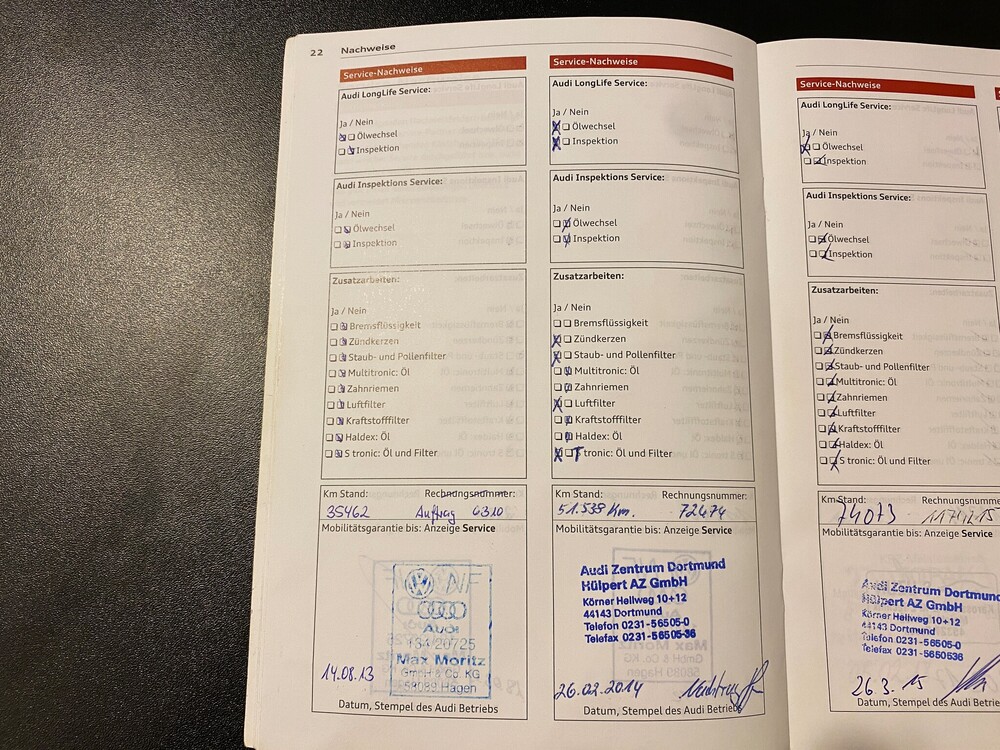 22 Nachweise
Service-Nachweise
Audi LongLife Service:
Ja / Nein
Ölwechsel
Inspektion
Audi Inspektions Service:
Ja / Nein
Ölwechsel
Inspektion
Zusatzarbeiten:
Ja / Nein
Bremsflüssigkeit
Zündkerzen
Staub- und Pollenfilter
Multitronic: Öl
Zahnriemen
Luftfilter
Kraftstofffilter
Haldex: Öl
S tronic: Öl und Filter
Km Stand: Rechnungsnummer:
35462 Auftrag 6310
Mobilitätsgarantie bis: Anzeige Service
NF
Audi
Max Moritz
GmH & Co. KG
58089 Hagen
14.08.13
Datum, Stempel des Audi Betriebs
Service-Nachweise
Audi LongLife Service:
Ja / Nein
Ölwechsel
Inspektion
Audi Inspektions Service:
Ja / Nein
Ölwechsel
Inspektion
Zusatzarbeiten:
Ja / Nein
Bremsflüssigkeit
Zündkerzen
Staub- und Pollenfilter
Multitronic: Öl
Zahnriemen
Luftfilter
Kraftstofffilter
Haldex: Öl
S tronic: Öl und Filter
Km Stand: Rechnungsnummer:
51.538 Km. 72474
Mobilitätsgarantie bis: Anzeige Service
Audi Zentrum Dortmund
Hülpert AZ GmbH
Körner Hellweg 10+12
44143 Dortmund
Telefon 0231-56505-0
Telefax 0231-56505-36
26.02.2014
Datum, Stempel des Audi Betriebs
Service-Nachweise
Audi LongLife Service:
Ja / Nein
Ölwechsel
Inspektion
Audi Inspektions Service:
Ja / Nein
Ölwechsel
Inspektion
Zusatzarbeiten:
Ja / Nein
Bremsflüssigkeit
Zündkerzen
Staub- und Pollenfilter
Multitronic: Öl
Zahnriemen
Luftfilter
Kraftstofffilter
Haldex: Öl
S tronic: Öl und Filter
Km Stand: Rechnungsnummer:
74073
Mobilitätsgarantie bis: Anzeige Service
Audi Zentrum Dortmund
Hülpert AZ GmbH
Körner Hellweg 10+12
44143 Dortmund
Telefon 0231-56505-0
Telefax 0231-5650536
26 3. 15
Datum, Stempel des Audi Betriebs